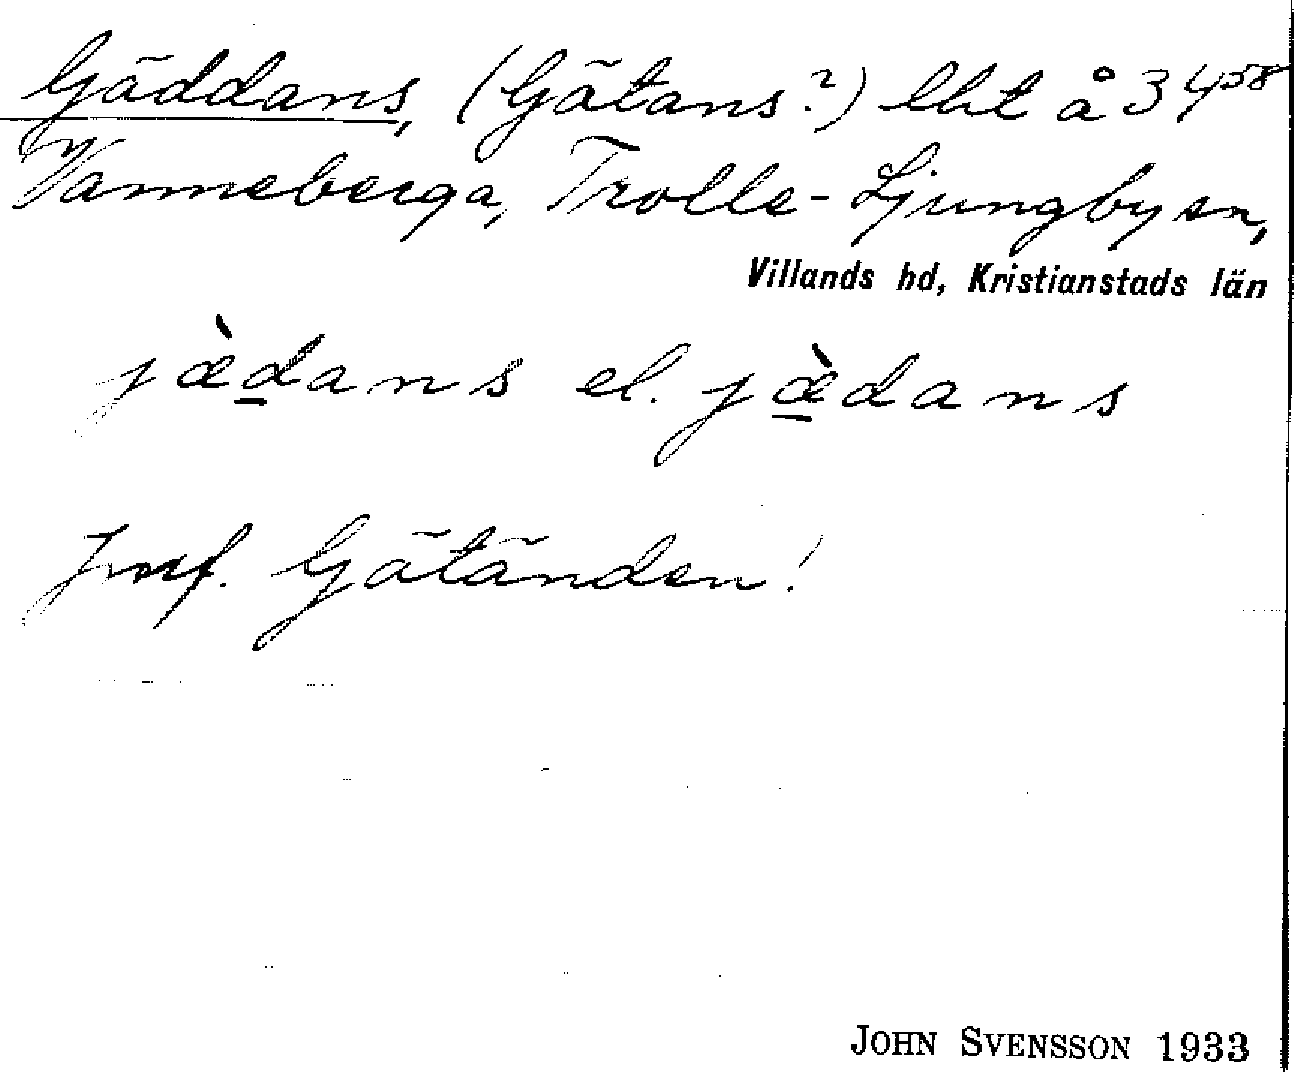 Gäddans, (Gätans?) lht å 34⁵⁸
Vanneberga, Trolle-Ljungby sn,
Villands hd, Kristianstads län
jæ̀d̲ans el. jæ̲̀dans
Jmf. Gätänden!
JOHN SVENSSON 1933